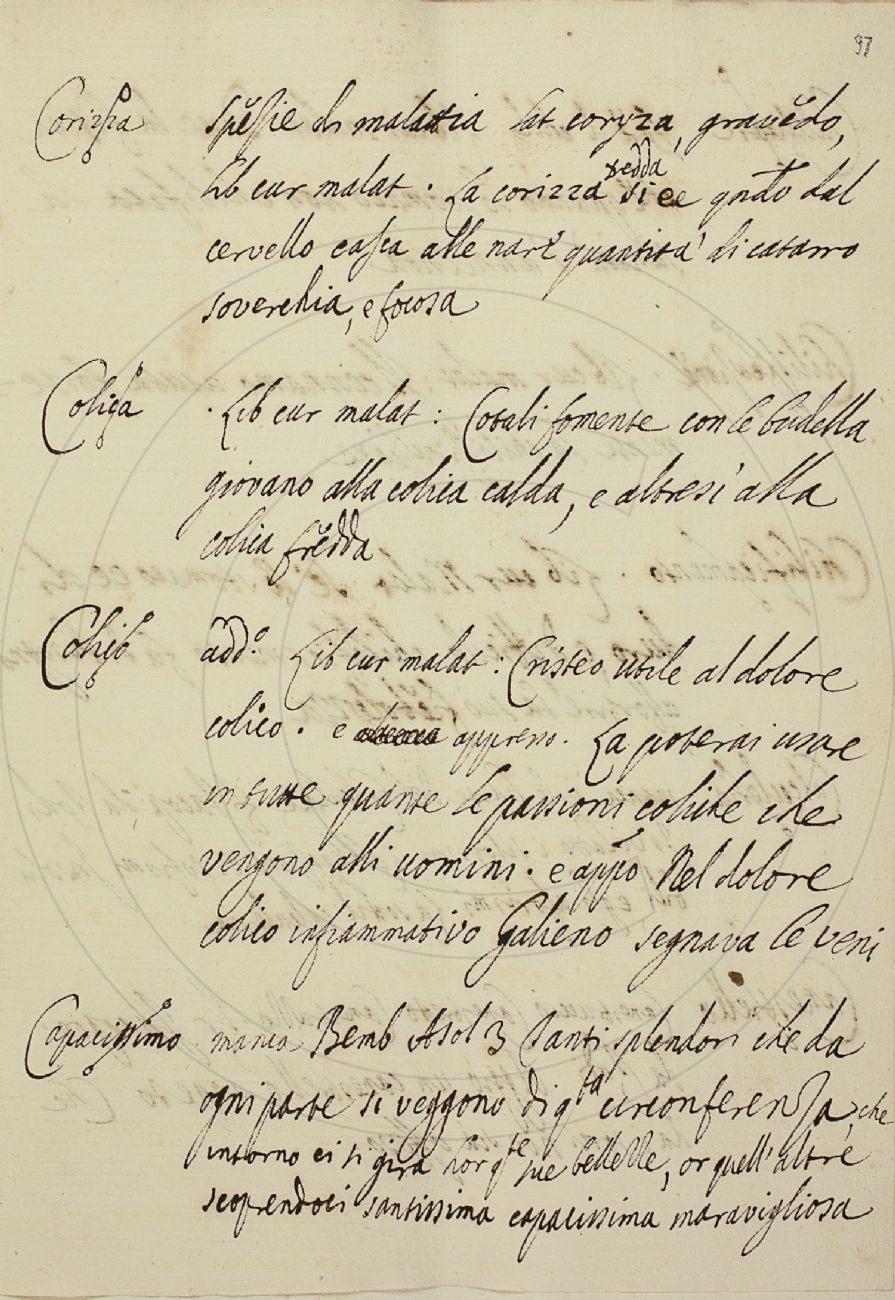 97
Corizza spezie di malattia Lat coryza, gravedo,
Lib cur malat. La corizza fredda si è qndo dal
cervello casca alle nari quantità di catarro
soverchia, e focosa
Colica . Lib cur malat: Cotali fomente con le budella
giovano alla colica calda, e altresì alla
colica fredda
Colico add.º Lib cur malat: Cristeo utile al dolore
colico. e appresso. La poterai usare
in tutte quante le passioni coliche che
vengono alli uomini. e appo Nel dolore
colico infiammativo Galieno segnava le veni
Capacissimo manca Bemb Asol 3 Tanti splendori che da
ogni parte si veggono di qta circonferenza, che
intorno ci si gira hor qte sue bellezze, or quell'altre
scoprendoci santissima capacissima maravigliosa